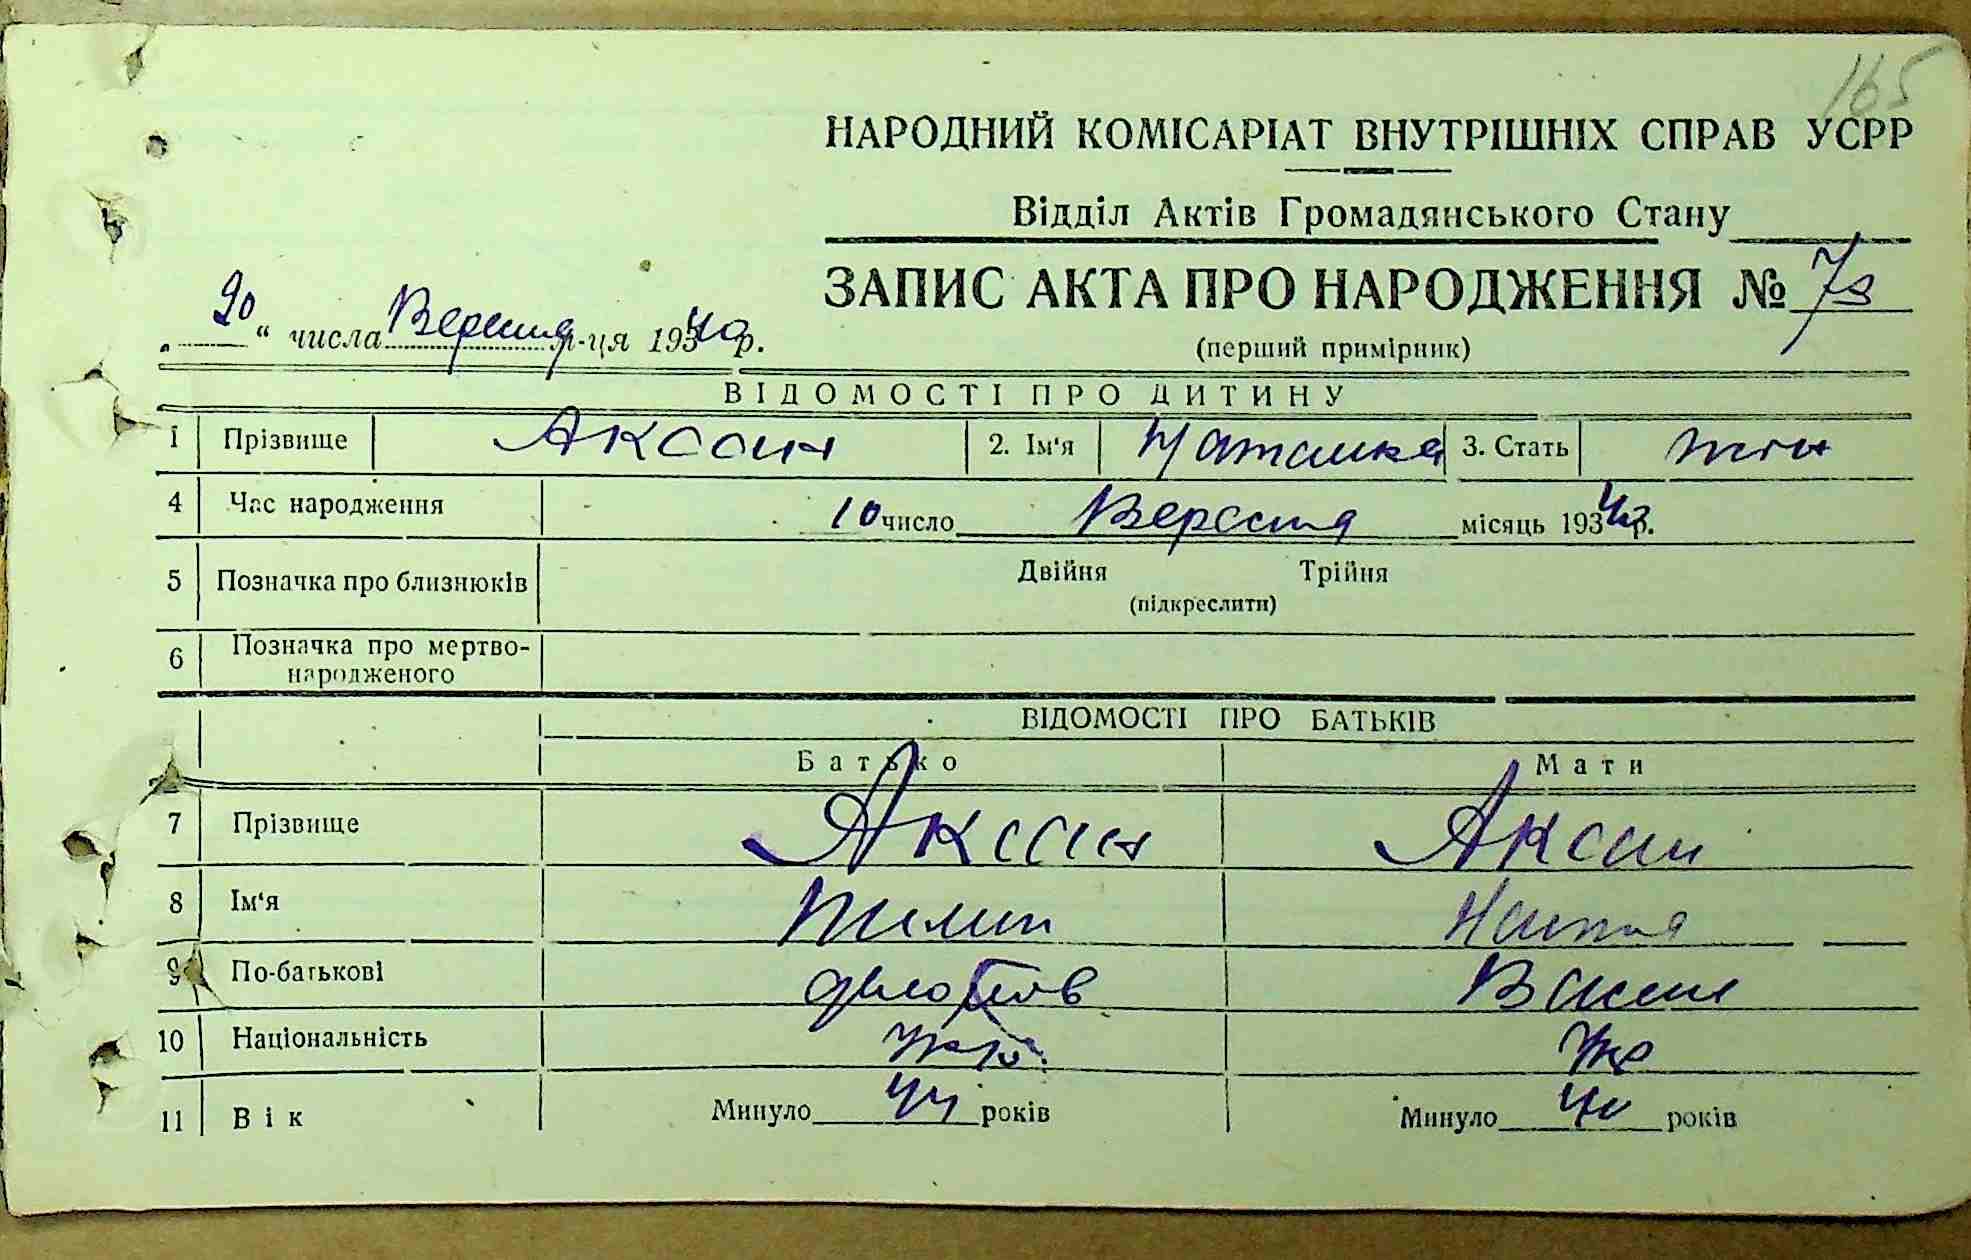 165
НАРОДНИЙ КОМІСАРІАТ ВНУТРІШНІХ СПРАВ УСРР
Відділ Актів Громадянського Стану
ЗАПИС АКТА ПРО НАРОДЖЕННЯ №
„20“ числа Вересня м-ця 1940 р.
(перший примірник)
ВІДОМОСТІ ПРО ДИТИНУ
1 Прізвище Аксан 2. Ім'я Наташка 3. Стать жін
4 Час народження 10 число Вересня місяць 1940 р.
5 Позначка про близнюків Двійня Трійня
(підкреслити)
6 Позначка про мертво-
народженого
ВІДОМОСТІ ПРО БАТЬКІВ
Батько Мати
7 Прізвище Аксан Аксан
8 Ім'я Пилип
9 По-батькові Васил
10 Національність Укр. Укр
11 Вік Минуло 44 років Минуло 40 років